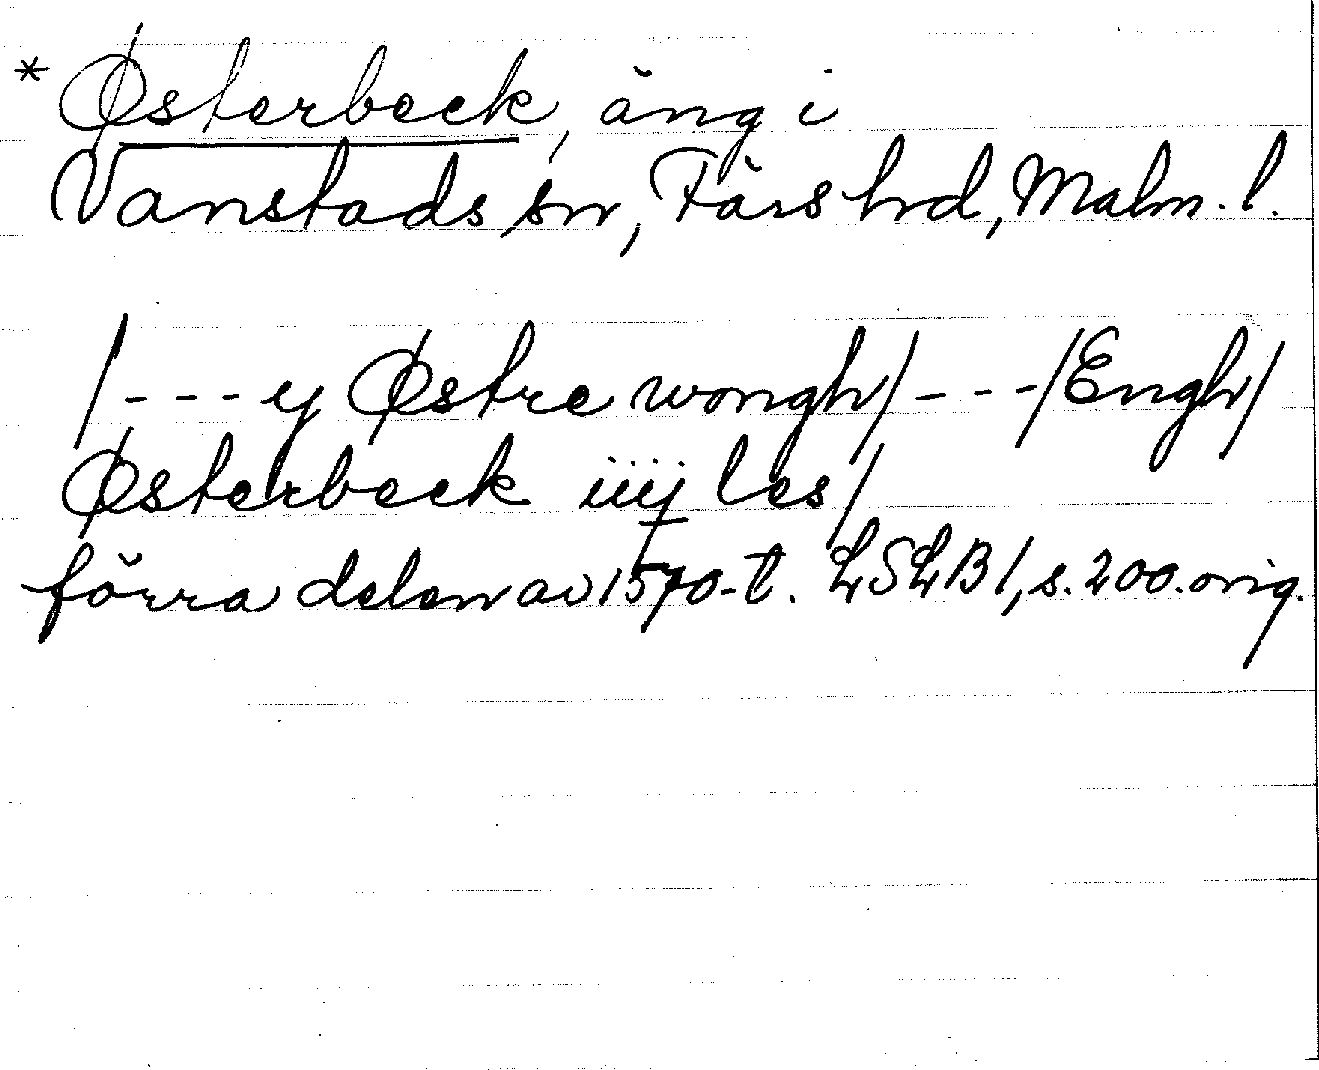 * Østerbeck, äng i
Vanstads sn, Färs hrd, Malm. l.
/---y Østre wongh/---/Engh/
Østerbeck iiij les/
förra delen av 1570-t. LSLB 1, s. 200. orig.